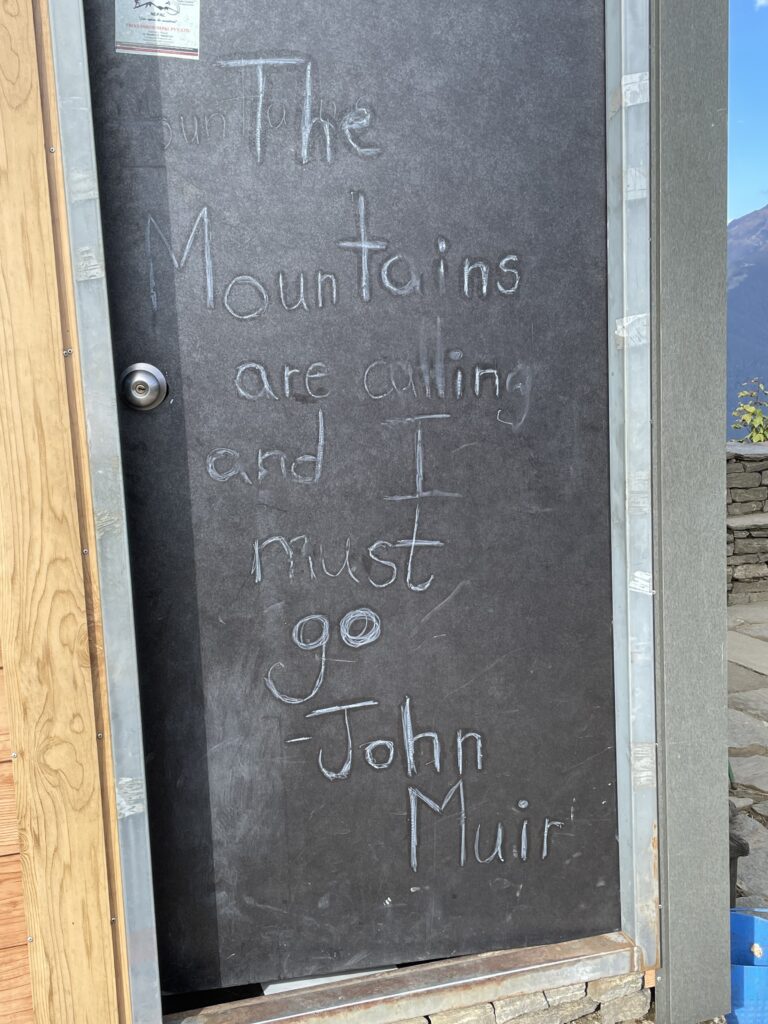 NEPAL
The
Mountains
are calling
and I
must
go
-John
Muir